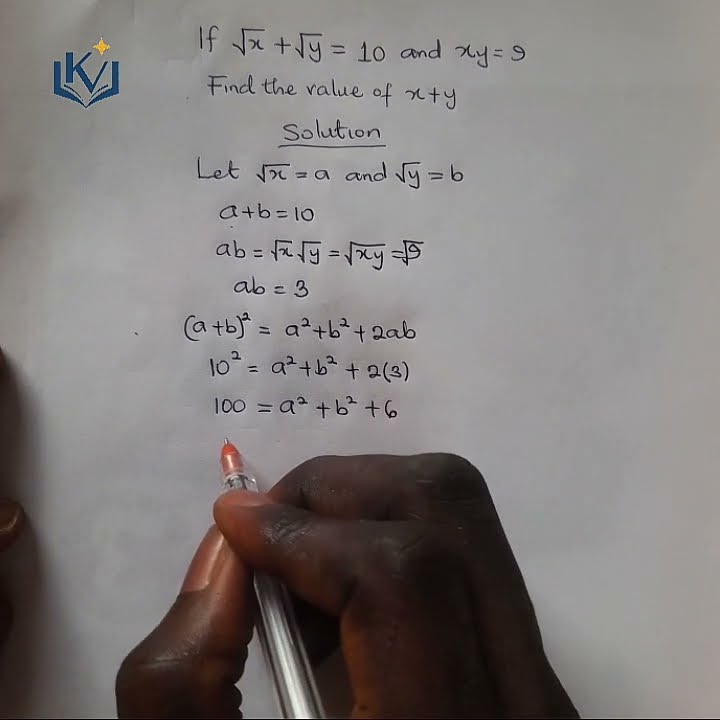 KV
If √x + √y = 10 and xy = 9
Find the value of x+y
Solution
Let √x = a and √y = b
a+b = 10
ab = √x √y = √xy = √9
ab = 3
(a+b)² = a²+b²+2ab
10² = a²+b² + 2(3)
100 = a² + b² + 6